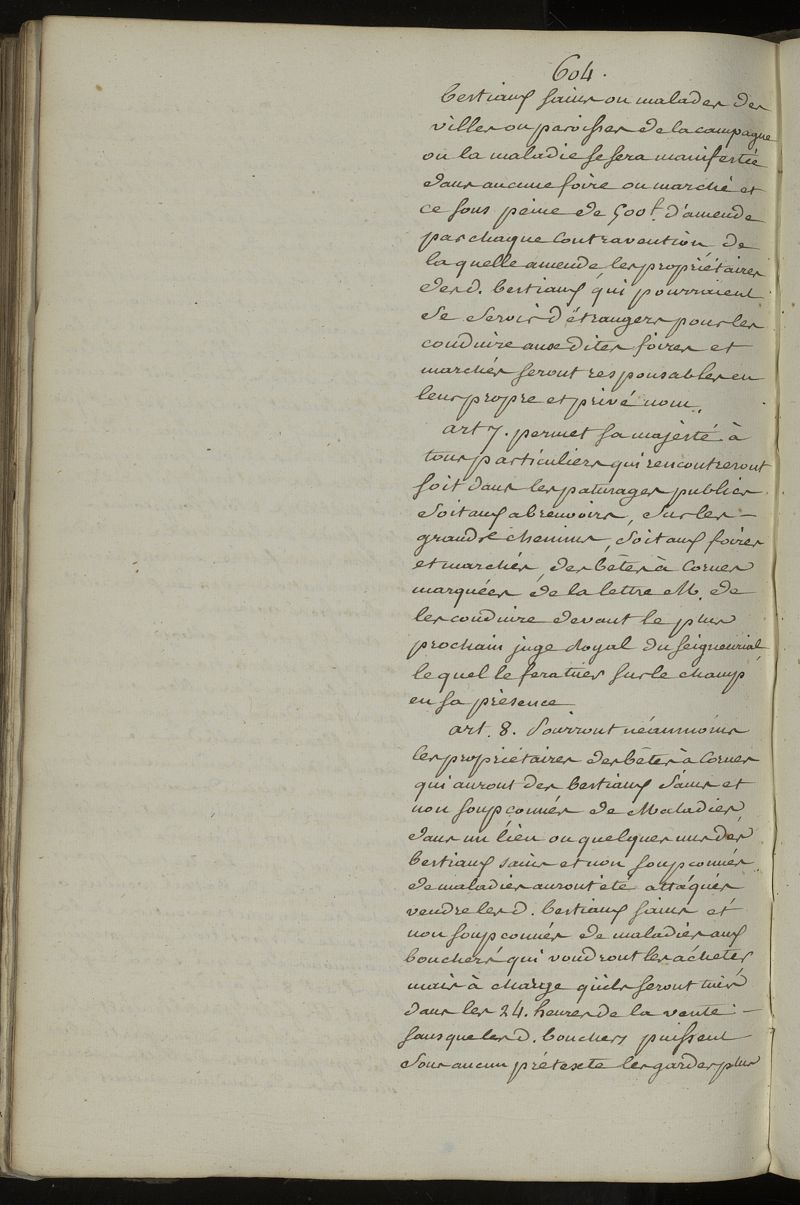 604.
bestiaux sains ou malades des
villes ou paroisses de la campagne
ou la maladie se sera manifestée
dans aucune foire ou marché et
ce sous peine de 500ᵗ. d'amende
par chaque contravention de
la quelle amende les propriétaires
des d. bestiaux qui pourraient
se servir d'étrangers pour les
conduire aux dites foires et
marchés seront responsables en
leur propre et privé nom.
art 7. permet sa majésté à
tous particuliers qui rencontreront
soit dans les paturages publics
soit aux abreuvoirs, sur les –
grands chemins, soit aux foires
et marchés, des bêtes à cornes
marquées de la lettre M. de
les conduire devant le plus
prochain juge Royal du seigneurial
le quel le fera tuer sur le champ
en sa présence
art. 8. Pourront néanmoins
les propriétaires des bêtes à cornes
qui auront des bestiaux sains et
non soupçonnés de Maladies
dans un lieu ou quelques uns des
bestiaux sains et non soupconnés
de maladies auront été attaqués
vendre les d. bestiaux sains et
non soupconnés de maladies aux
bouchers qui voudront les achetes
mais à charge quils seront tués
dans les 24. heures de la vente –
sans que les d. bouchers puissent
sous aucun prétexte les garder plus